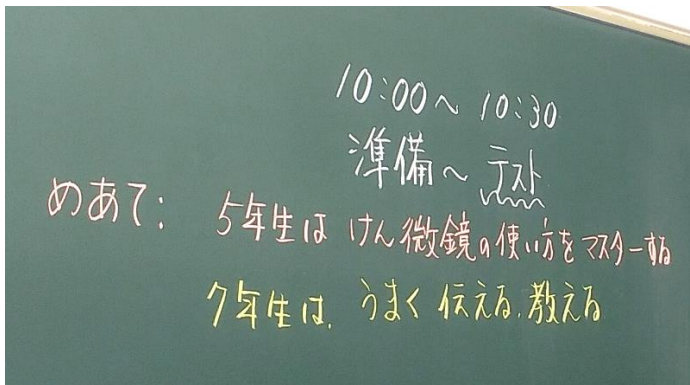 10:00～10:30
準備～テスト
めあて: 5年生は けん微鏡の使い方をマスターする
7年生は、うまく伝える、教える